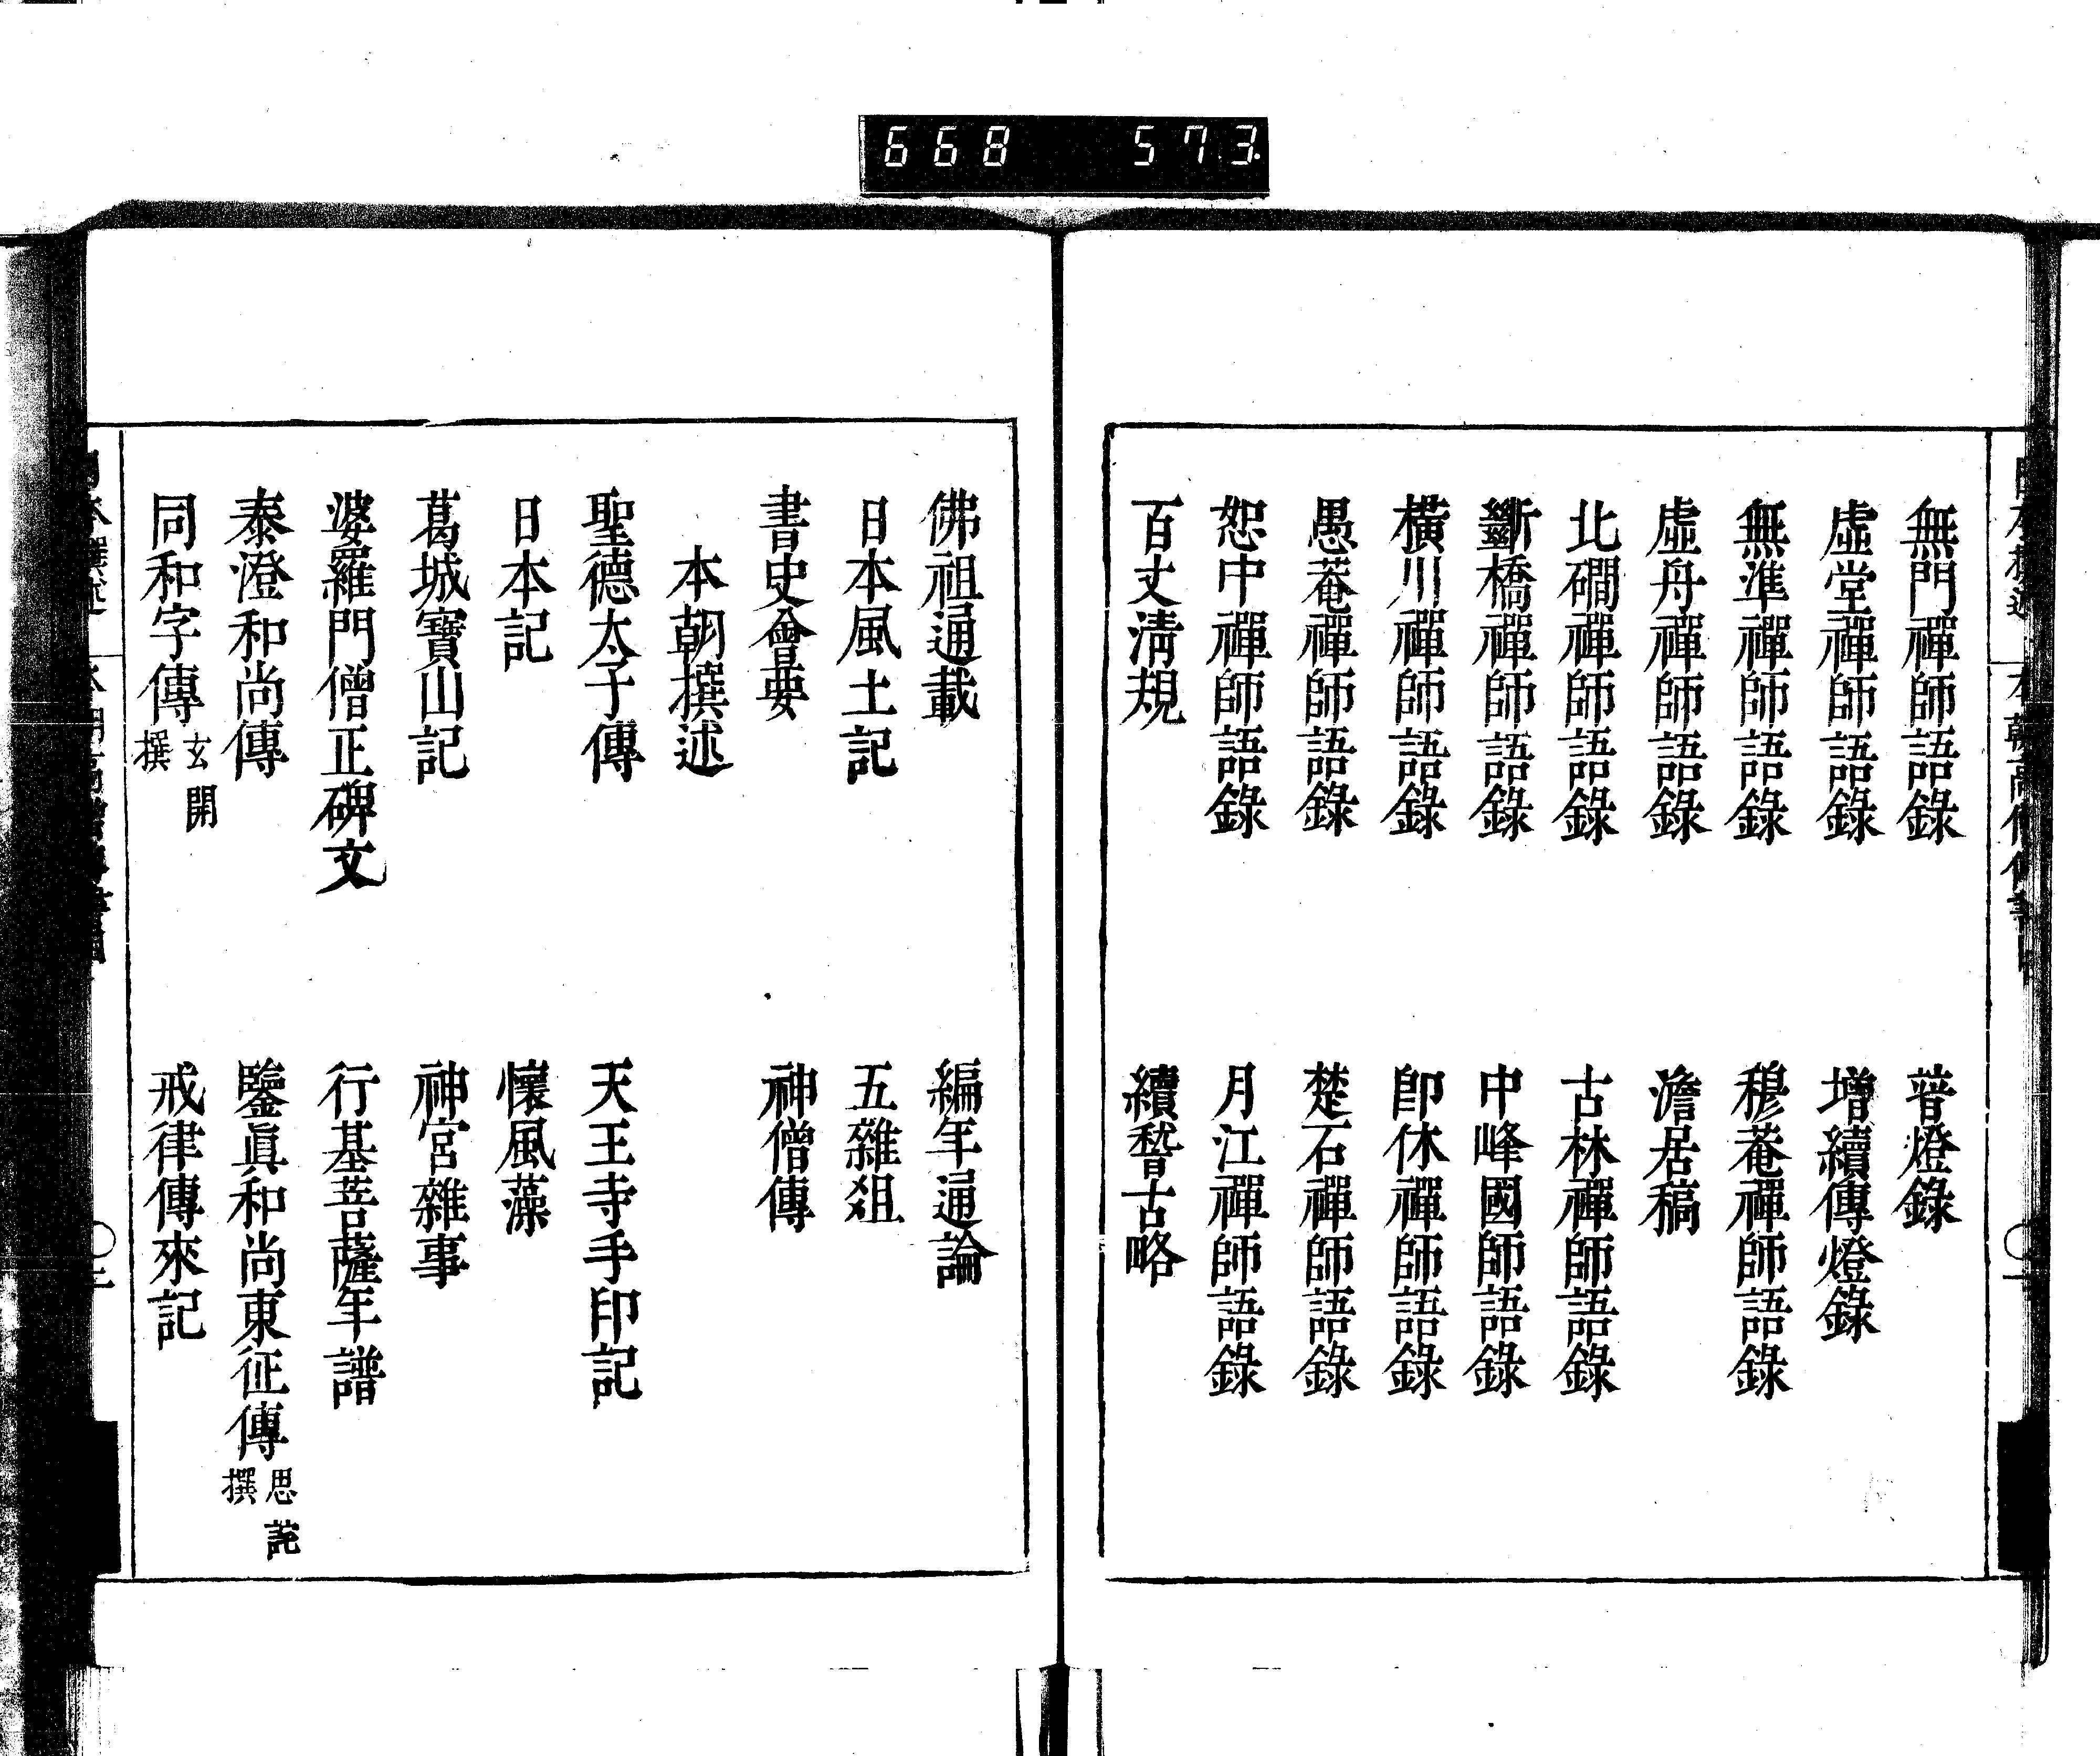 668 573
無門禪師語錄 普燈錄
虛堂禪師語錄 增續傳燈錄
無準禪師語錄 穆菴禪師語錄
虛舟禪師語錄 澹居稿
北磵禪師語錄 古林禪師語錄
斷橋禪師語錄 中峰國師語錄
橫川禪師語錄 卽休禪師語錄
愚菴禪師語錄 楚石禪師語錄
恕中禪師語錄 月江禪師語錄
百丈淸規 續稽古略
佛祖通載 編年通論
日本風土記 五雜爼
書史會要 神僧傳
本朝撰述
聖德太子傳 天王寺手印記
日本記 懷風藻
葛城寶山記 神宮雜事
婆羅門僧正碑文 行基菩薩年譜
泰澄和尚傳 鑒眞和尚東征傳 思託撰
同和字傳 玄開撰 戒律傳來記